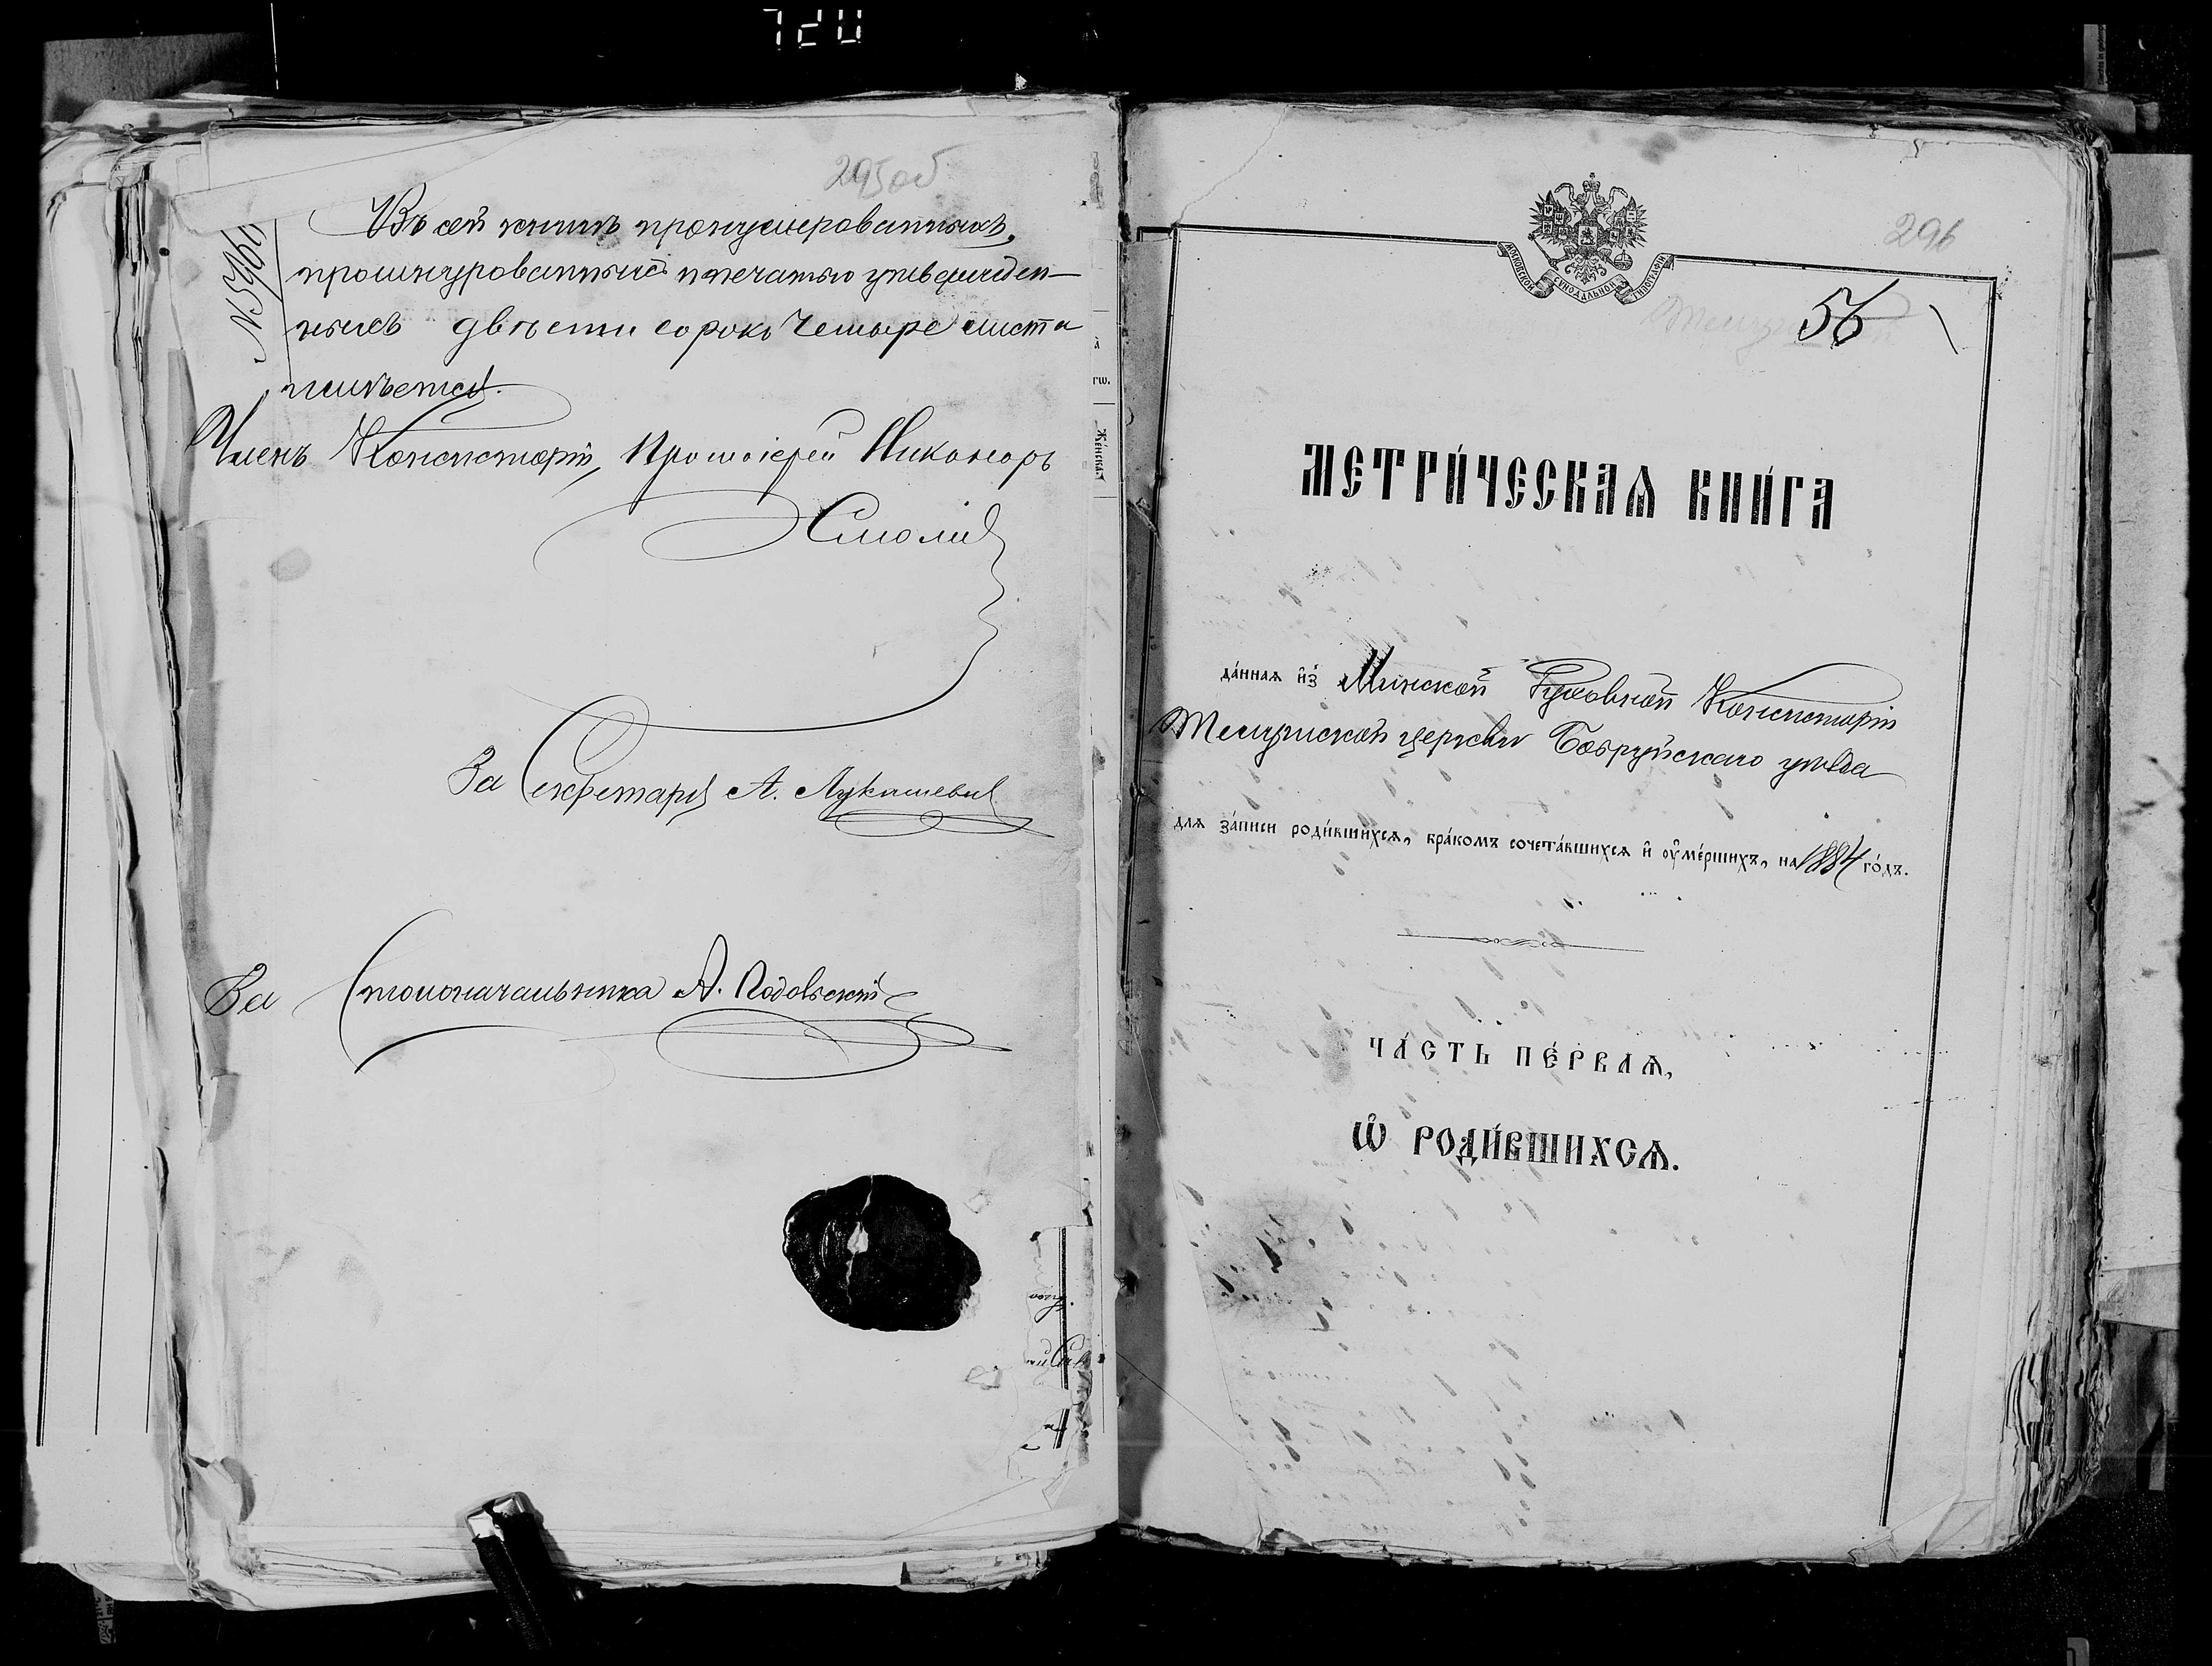 720
295об
Въ сей книгѣ пронумерованныхъ,
прошнурованныхъ и печатью утвержден-
ныхъ двѣсти сорокъ четыре листа
имѣется.
Членъ Консисторіи, Протоіерей Никаноръ
Смоличъ
За Секретаря А. Лукашевичъ
За Столоначальника А.
Же́нска
гѡ.
296
МОСКОВСКОЙ СѴНОДАЛЬНОЙ ТИПОГРАФІИ
56
МЕТРИ́ЧЕСКАѦ КНИ́ГА
да́ннаѧ и҆з̾ Минской Духовной Консисторіи
церкви Бобруйскаго уѣзда
длѧ за́писи роди́вшихсѧ, бра́комъ сочета́вшихсѧ и҆ ѹ҆ме́ршихъ, на 1884 го́дъ.
ЧА́СТЬ ПЕ́РВАѦ,
Ѡ҆ РОДИ́ВШИХСѦ.